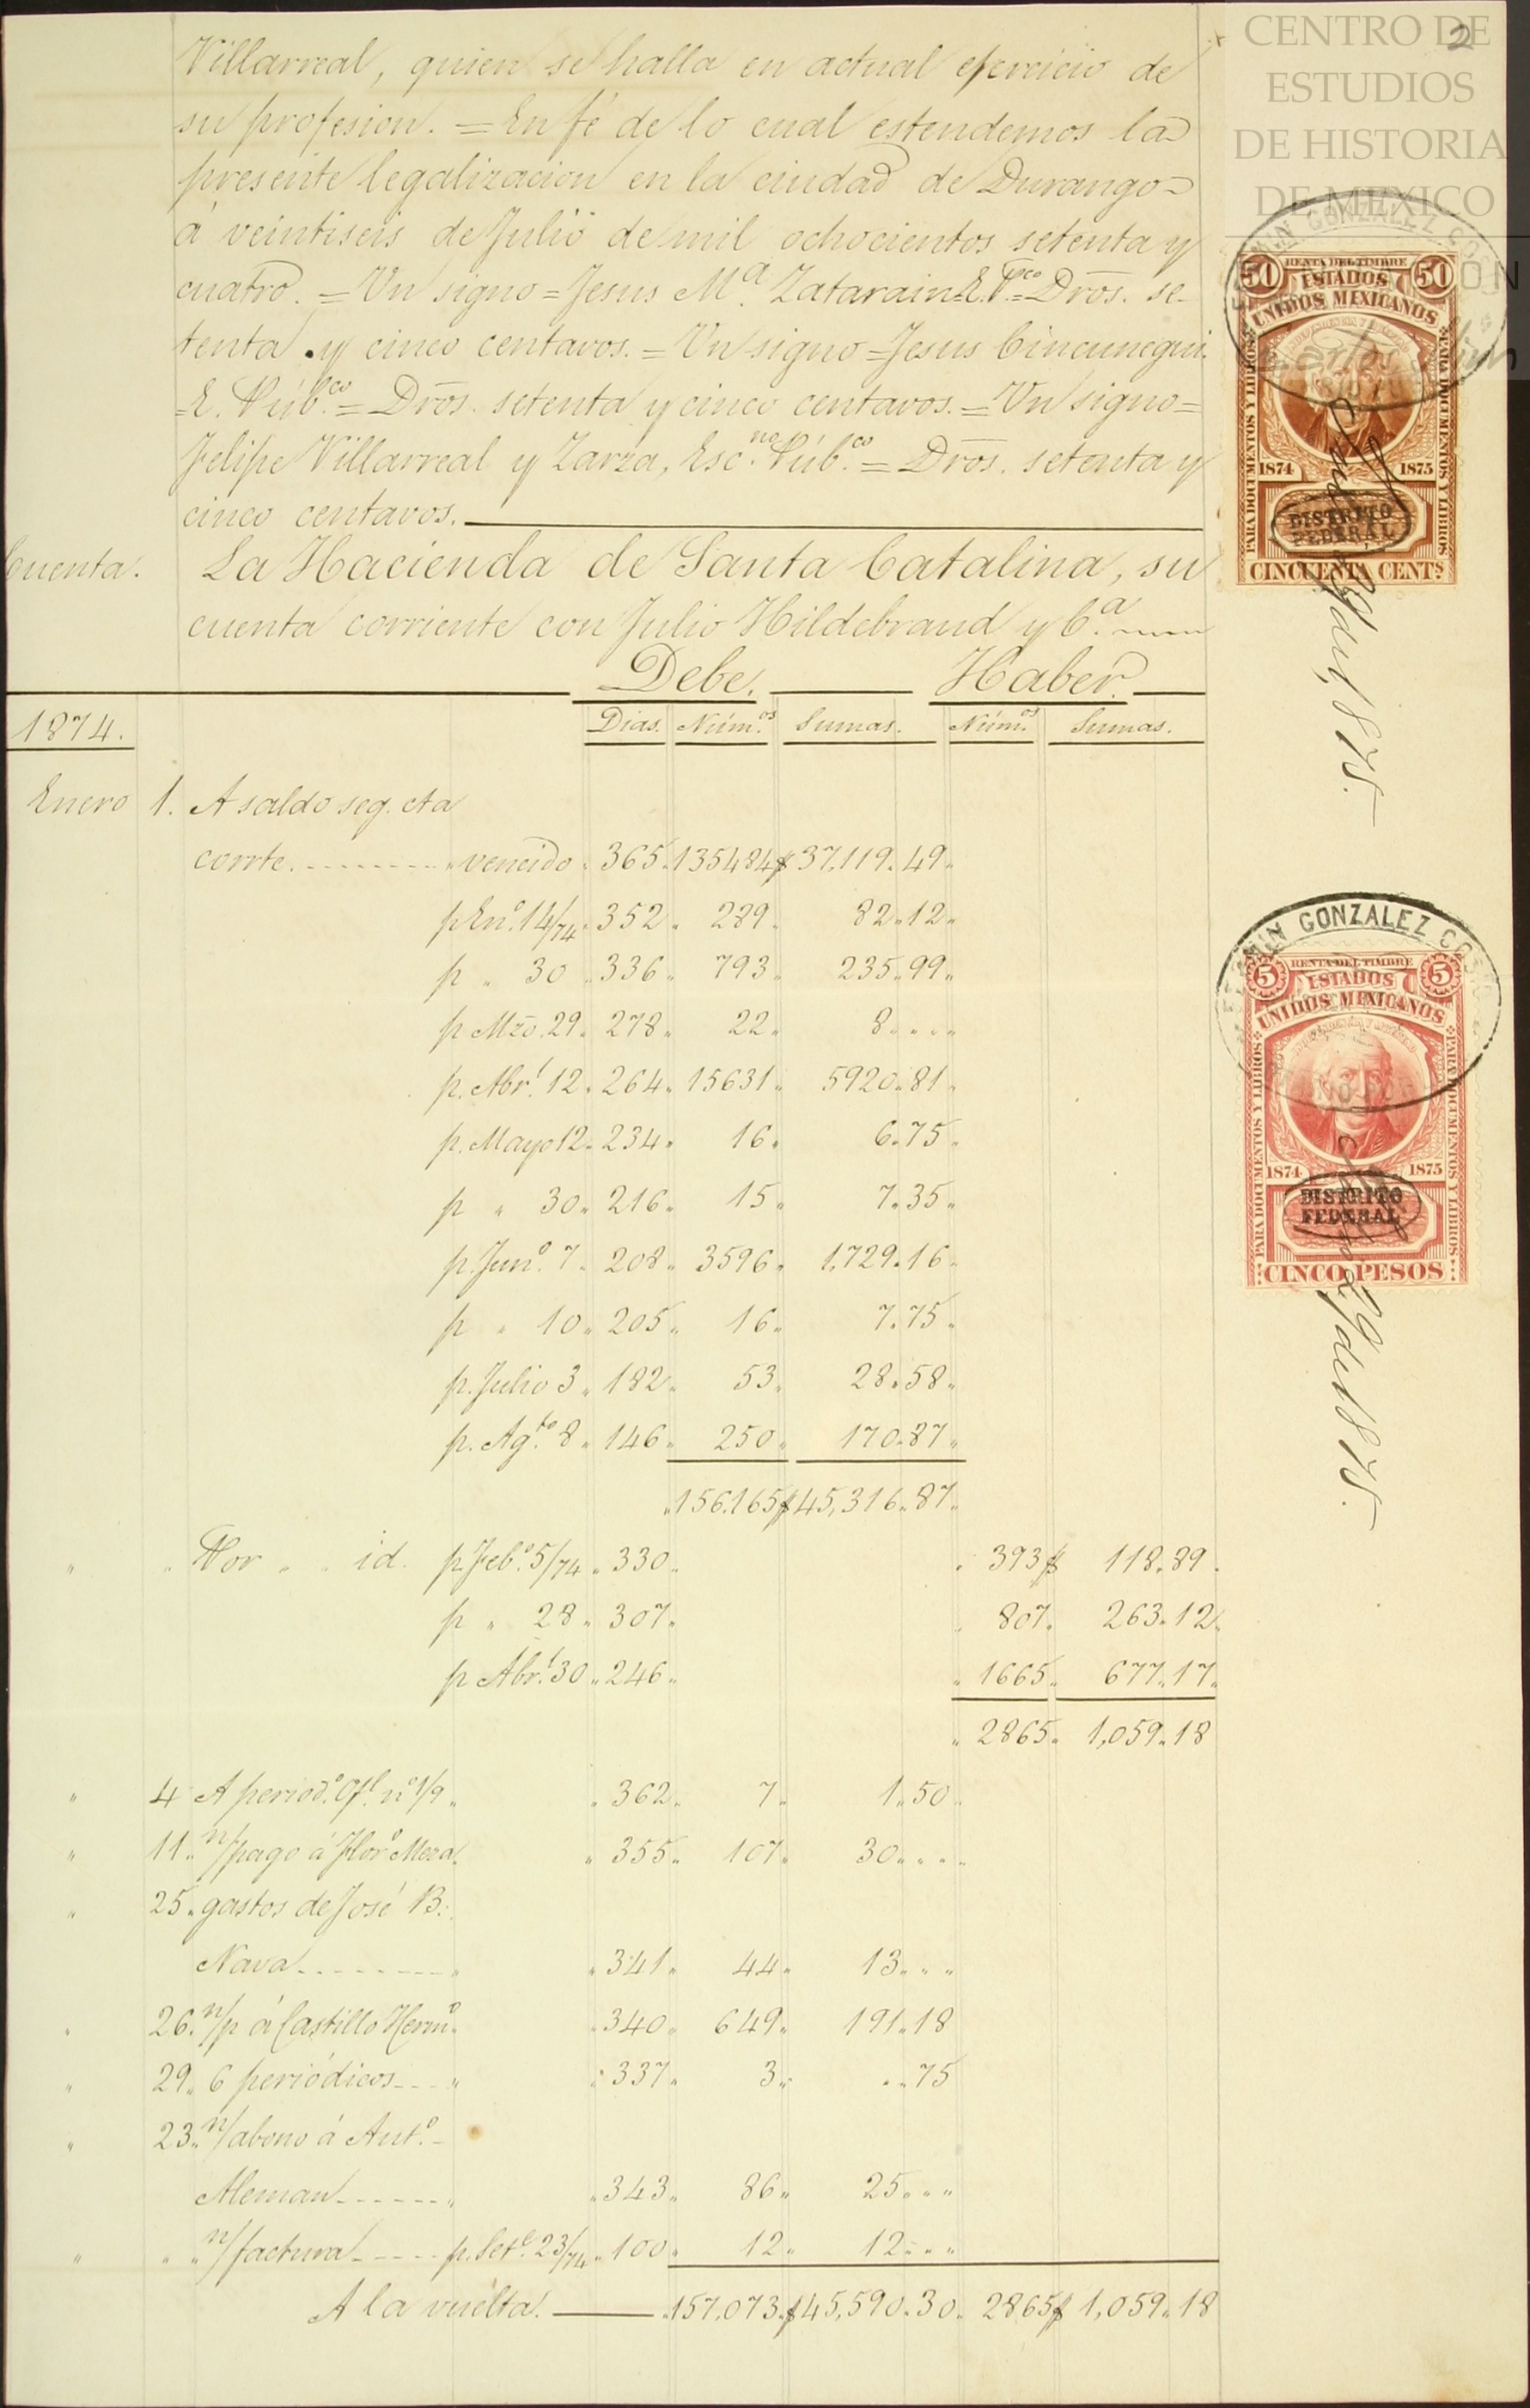 Villarreal, quien se halla en actual ejercicio de
su profesion. = En fé de lo cual estendemos la
presente legalizacion en la ciudad de Durango
á veintiseis de Julio de mil ochocientos setenta y
cuatro. = Un signo = Jesus Mª. Zatarain = E. Pco = Dros. se-
tenta y cinco centavos. = Un signo = Jesus Cincunegui.
= E. Púb.co = Dros. setenta y cinco centavos. = Un signo =
Felipe Villarreal y Zarza, Esc.no Púb.co = Dros. setenta y
cinco centavos.
Cuenta. La Hacienda de Santa Catalina, su
cuenta corriente con Julio Hildebrand y C.a
Debe. Haber.
1874. Dias. Núm.os Sumas. Núm.os Sumas.
Enero 1. A saldo seg. cta
corrte. " vencido " 365 " 135484 $ 37,119 " 49 "
p En.o 14/74 " 352 " 289 " 82 " 12 "
p " 30 " 336 " 793 " 235 " 99 "
p Mzo. 29 " 278 " 22 " 8 " " "
p. Abr.l 12 " 264 " 15631 " 5920 " 81 "
p. Mayo 12 " 234 " 16 " 6 " 75 "
p " 30 " 216 " 15 " 7 " 35 "
p. Jun.o 7 " 208 " 3596 " 1,729 " 16 "
p " 10 " 205 " 16 " 7 " 75 "
p. Julio 3 " 182 " 53 " 28 " 58 "
p. Ag.to 8 " 146 " 250 " 170 " 87 "
" 156.165 $ 45,316 " 87 "
" " Por " " id. p. Feb.o 5/74 " 330 " " 393 $ 118 " 89 "
p " 28 " 307 " " 807 " 263 " 12 "
p Abr.l 30 " 246 " " 1665 " 677 " 17 "
" 2865 " 1,059 " 18
" 4 A period.o Of.l no 1/9 " " 362 " 7 " 1 " 50 "
" 11 " n/pago á Flor.o Meza " " 355 " 107 " 30 " " "
" 25 " gastos de José B.
Nava " " 341 " 44 " 13 " " "
" 26 " n/p á Castillo Herm.o " " 340 " 649 " 191 " 18
" 29 " 6 periódicos " " 337 " 3 " " " 75
" 23 " n/abono á Ant.o
Aleman " " 343 " 86 " 25 " " "
" " " n/factura p. Set.e 23/74 " 100 " 12 " 12 " " "
A la vuelta. " 157,073 " $ 45,590 " 30 " 2865 $ 1,059 " 18
2
CENTRO DE
ESTUDIOS
DE HISTORIA
DE MEXICO
50 RENTA DEL TIMBRE 50
ESTADOS
UNIDOS MEXICANOS
PARA DOCUMENTOS Y LIBROS
PARA DOCUMENTOS Y LIBROS
1874 1875
DISTRITO
FEDERAL
CINCUENTA CENTS
1875.
FERMIN GONZALEZ
5 RENTA DEL TIMBRE 5
ESTADOS
UNIDOS MEXICANOS
PARA DOCUMENTOS Y LIBROS
PARA DOCUMENTOS Y LIBROS
1874 1875
DISTRITO
FEDERAL
CINCO PESOS
1875.